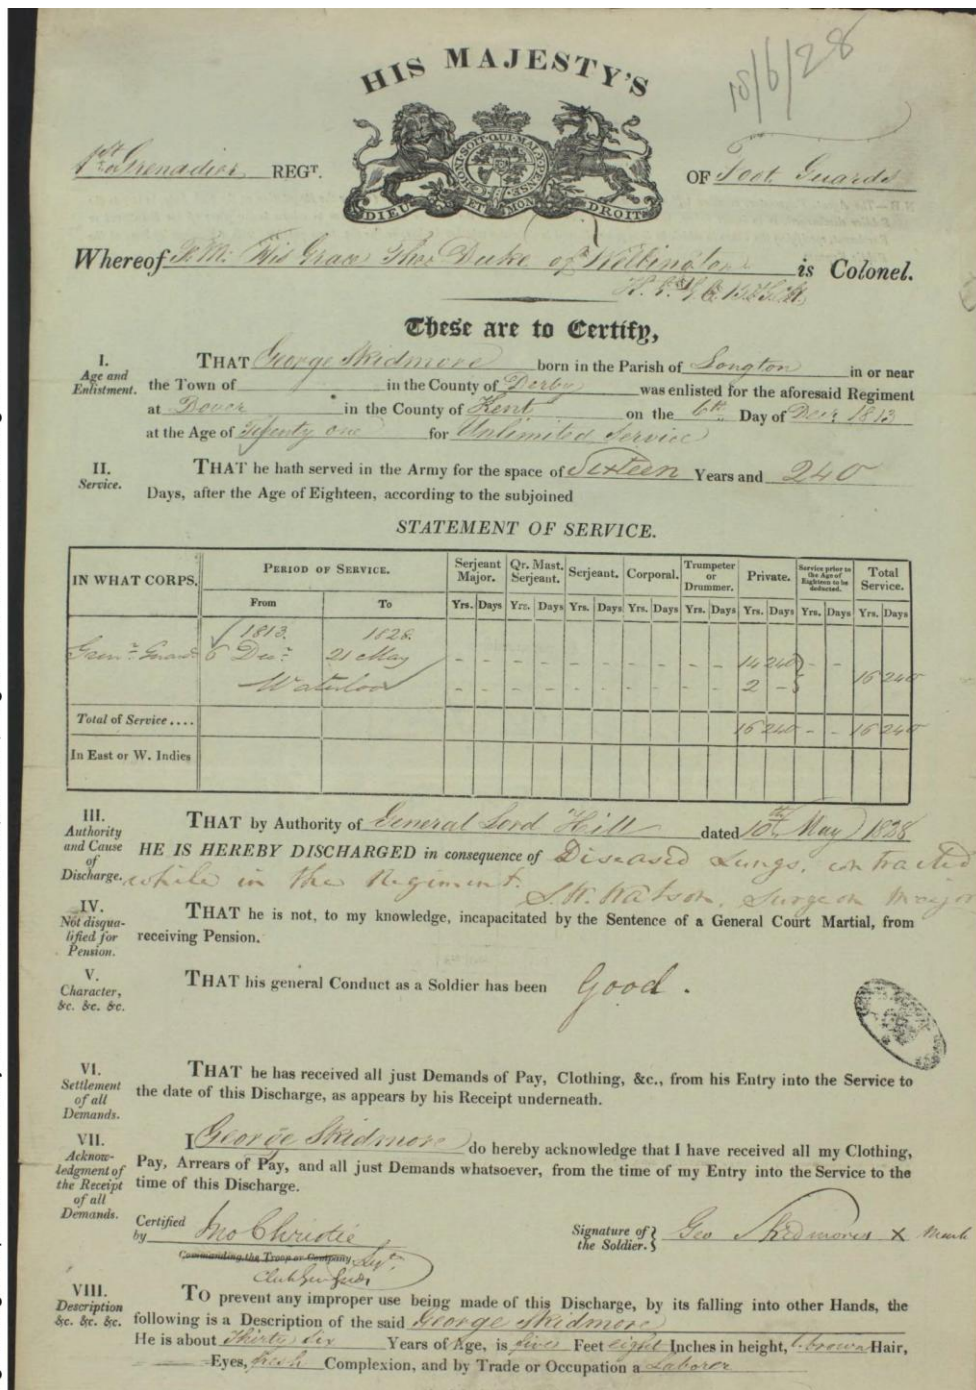 18/6/28
HIS MAJESTY'S
1st or Grenadier REGT. OF Foot Guards
HONI·SOIT·QUI·MAL·Y·PENSE
DIEU ET MON DROIT
Whereof F.M. His Grace The Duke of Wellington is Colonel.
These are to Certify,
I. Age and Enlistment.
THAT George Skidmore born in the Parish of Longton in or near
the Town of in the County of Derby was enlisted for the aforesaid Regiment
at Dover in the County of Kent on the 6th Day of Decr 1813
at the Age of Twenty one for Unlimited Service
II. Service.
THAT he hath served in the Army for the space of Sixteen Years and 240
Days, after the Age of Eighteen, according to the subjoined
STATEMENT OF SERVICE.
IN WHAT CORPS. PERIOD OF SERVICE. Serjeant Major. Qr. Mast. Serjeant. Serjeant. Corporal. Trumpeter or Drummer. Private. Service prior to the Age of Eighteen to be deducted. Total Service.
From To Yrs. Days Yrs. Days Yrs. Days Yrs. Days Yrs. Days Yrs. Days Yrs. Days Yrs. Days
1813. 1828.
Grenr. Guards 6 Decr. 21 May - - - - - - - - - - 14 240 - -
Waterloo - - - - - - - - - - 2 - 16 240
Total of Service.... 16 240 - - 16 240
In East or W. Indies
III. Authority and Cause of Discharge.
THAT by Authority of General Lord Hill dated 10th May 1828
HE IS HEREBY DISCHARGED in consequence of Diseased Lungs, contracted
while in the Regiment.
J.W. Watson, Surgeon Major
IV. Not disqualified for Pension.
THAT he is not, to my knowledge, incapacitated by the Sentence of a General Court Martial, from
receiving Pension.
V. Character, &c. &c. &c.
THAT his general Conduct as a Soldier has been Good.
VI. Settlement of all Demands.
THAT he has received all just Demands of Pay, Clothing, &c., from his Entry into the Service to
the date of this Discharge, as appears by his Receipt underneath.
VII. Acknowledgment of the Receipt of all Demands.
I George Skidmore do hereby acknowledge that I have received all my Clothing,
Pay, Arrears of Pay, and all just Demands whatsoever, from the time of my Entry into the Service to the
time of this Discharge.
Certified by Jno Christie
Signature of the Soldier. Geo Skidmores X Mark
Commanding the Troop or Company
VIII. Description &c. &c. &c.
TO prevent any improper use being made of this Discharge, by its falling into other Hands, the
following is a Description of the said George Skidmore
He is about Thirty Six Years of Age, is five Feet eight Inches in height, l. brown Hair,
Eyes, fresh Complexion, and by Trade or Occupation a Laborer